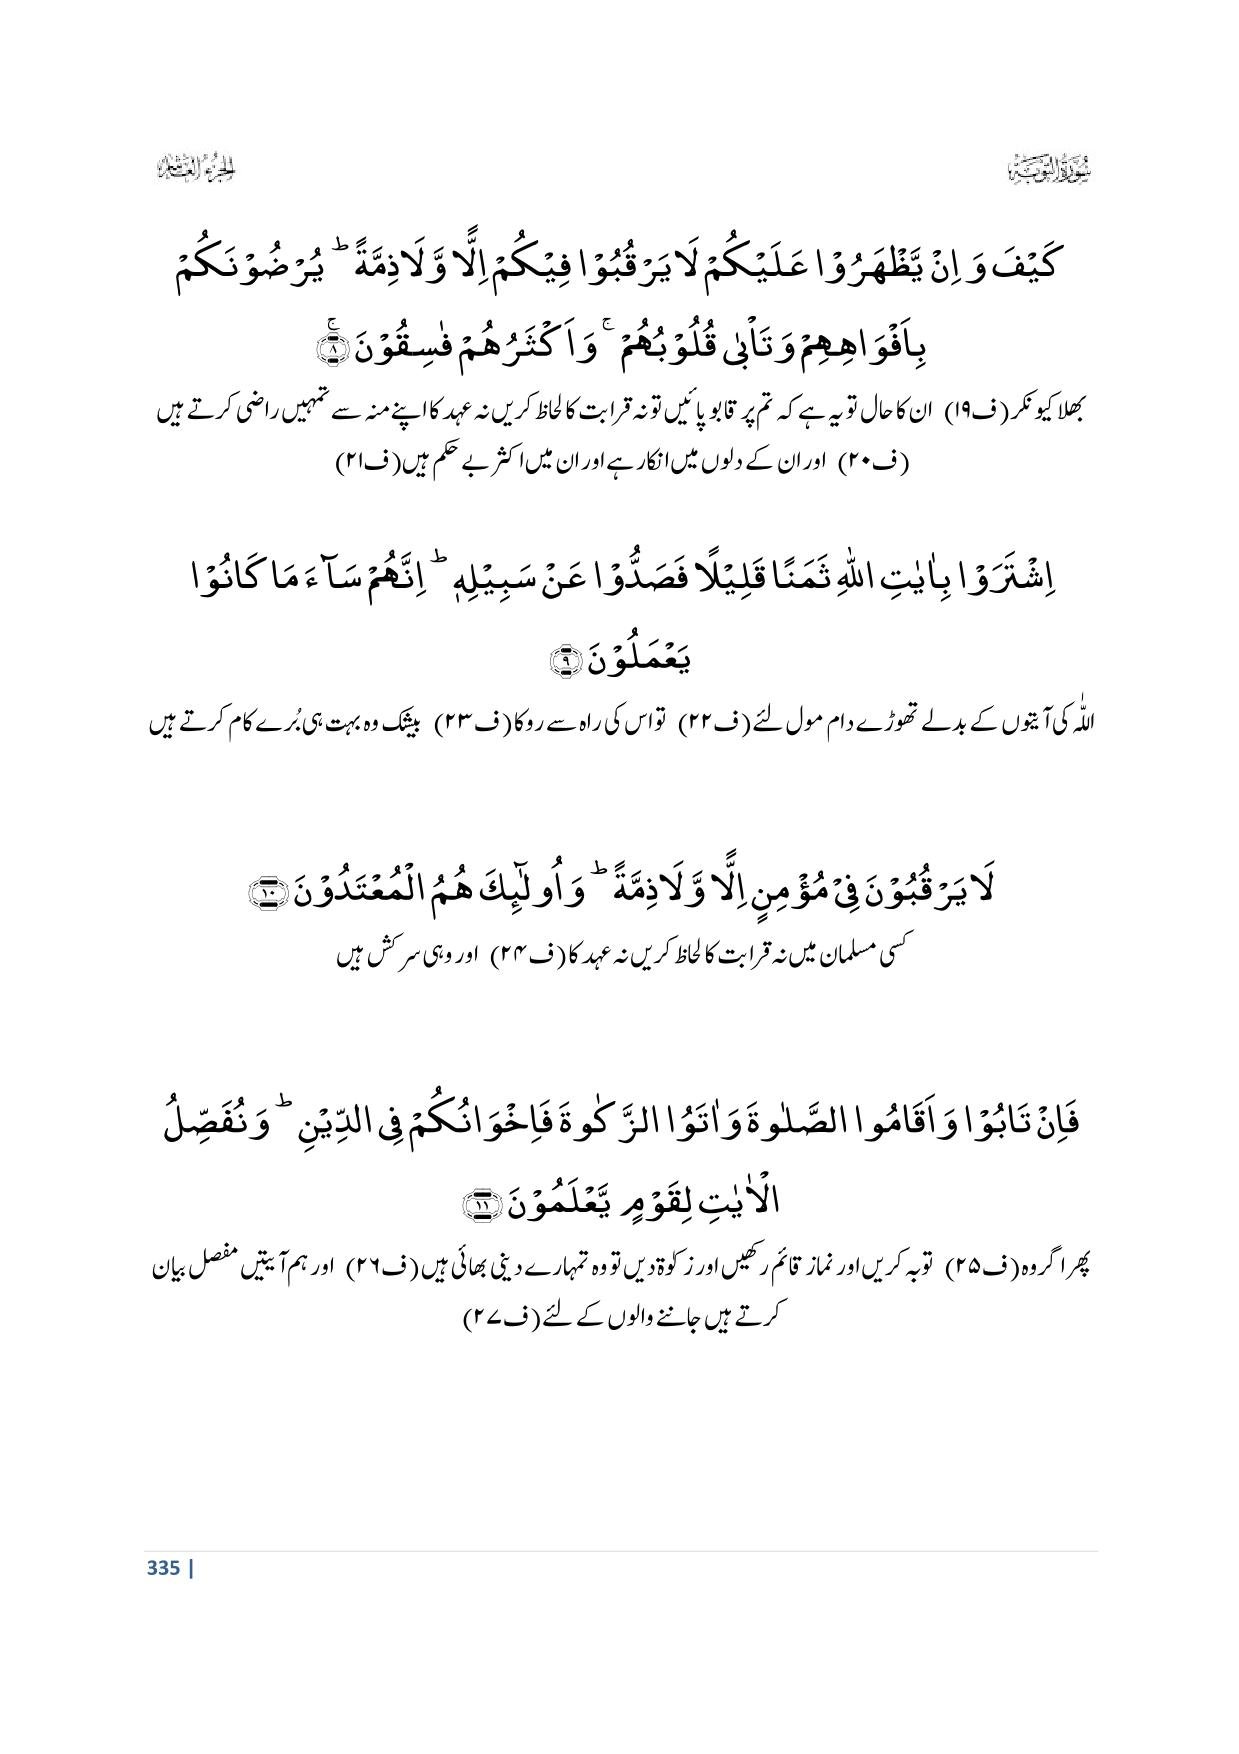 سُوْرَةُ التَّوْبَة
الجزء العاشر
كَيْفَ وَ اِنْ يَّظْهَرُوْا عَلَيْكُمْ لَا يَرْقُبُوْا فِيْكُمْ اِلًّا وَّ لَا ذِمَّةً ؕ يُرْضُوْنَكُمْ
بِاَفْوَاهِهِمْ وَ تَاْبٰى قُلُوْبُهُمْ ۚ وَ اَكْثَرُهُمْ فٰسِقُوْنَ ۚ﴿۸﴾
بھلا کیونکر (ف۱۹) ان کا حال تو یہ ہے کہ تم پر قابو پائیں تو نہ قرابت کا لحاظ کریں نہ عہد کا اپنے منہ سے تمہیں راضی کرتے ہیں
(ف۲۰) اور ان کے دلوں میں انکار ہے اور ان میں اکثر بے حکم ہیں (ف۲۱)
اِشْتَرَوْا بِاٰیٰتِ اللّٰهِ ثَمَنًا قَلِیْلًا فَصَدُّوْا عَنْ سَبِیْلِهٖ ؕ اِنَّهُمْ سَآءَ مَا كَانُوْا
یَعْمَلُوْنَ ﴿۹﴾
اللّٰہ کی آیتوں کے بدلے تھوڑے دام مول لئے (ف۲۲) تو اس کی راہ سے روکا (ف۲۳) بیشک وہ بہت ہی بُرے کام کرتے ہیں
لَا یَرْقُبُوْنَ فِیْ مُؤْمِنٍ اِلًّا وَّ لَا ذِمَّةً ؕ وَ اُولٰٓئِكَ هُمُ الْمُعْتَدُوْنَ ﴿۱۰﴾
کسی مسلمان میں نہ قرابت کا لحاظ کریں نہ عہد کا (ف۲۴) اور وہی سرکش ہیں
فَاِنْ تَابُوْا وَ اَقَامُوا الصَّلٰوةَ وَ اٰتَوُا الزَّكٰوةَ فَاِخْوَانُكُمْ فِی الدِّیْنِ ؕ وَ نُفَصِّلُ
الْاٰیٰتِ لِقَوْمٍ یَّعْلَمُوْنَ ﴿۱۱﴾
پھر اگر وہ (ف۲۵) توبہ کریں اور نماز قائم رکھیں اور زکوٰۃ دیں تو وہ تمہارے دینی بھائی ہیں (ف۲۶) اور ہم آیتیں مفصل بیان
کرتے ہیں جاننے والوں کے لئے (ف۲۷)
335 |